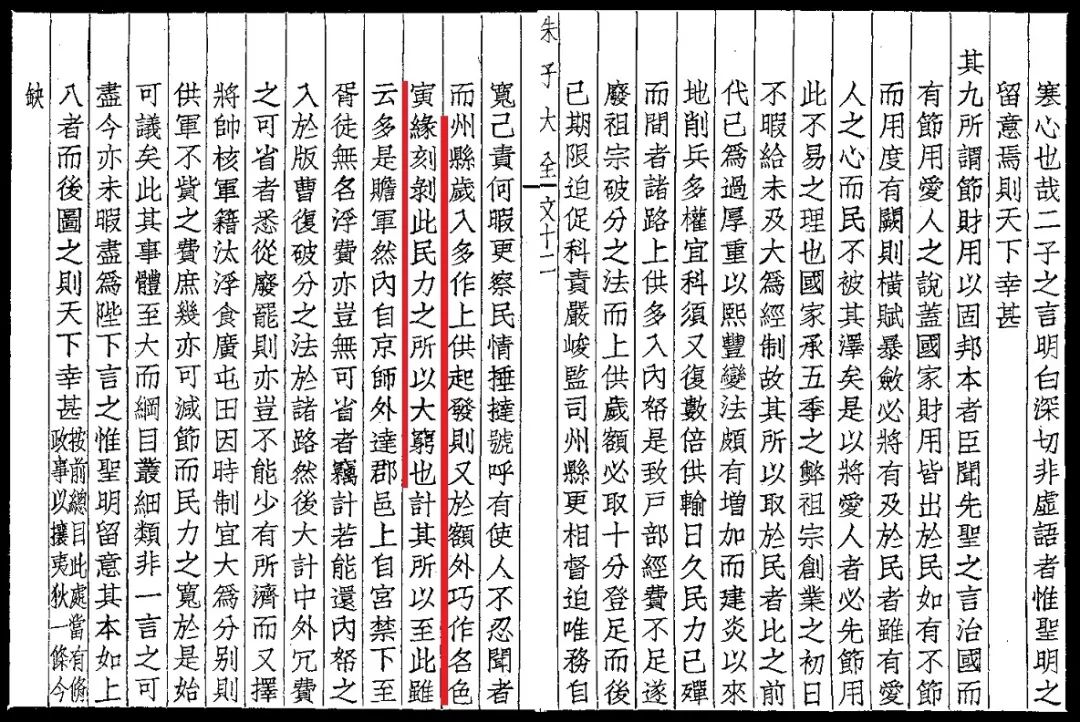 寒心也哉二子之言明白深切非虛語者惟聖明之
留意焉則天下幸甚
其九所謂節財用以固邦本者臣聞先聖之言治國而
有節用愛人之說蓋國家財用皆出於民如有不節
而用度有闕則橫賦暴斂必將有及於民者雖有愛
人之心而民不被其澤矣是以將愛人者必先節用
此不易之理也國家承五季之弊祖宗創業之初日
不暇給未及大爲經制故其所以取於民者比之前
代已爲過厚重以熙豐變法頗有增加而建炎以來
地削兵多權宜科須又復數倍供輸日久民力已殫
而間者諸路上供多入內帑是致戶部經費不足遂
廢祖宗破分之法而上供歲額必取十分登足而後
已期限迫促科責嚴峻監司州縣更相督迫唯務自
朱子大全 文十二
寬己責何暇更察民情捶撻號呼有使人不忍聞者
而州縣歲入多作上供起發則又於額外巧作名色
寅緣刻剝此民力之所以大窮也計其所以至此雖
云多是贍軍然內自京師外達郡邑上自宮禁下至
胥徒無名浮費亦豈無可省者竊計若能還內帑之
入於版曹復破分之法於諸路然後大計中外冗費
之可省者悉從廢罷則亦豈不能少有所濟而又擇
將帥核軍籍汰浮食廣屯田因時制宜大爲分別則
供軍不貲之費庶幾亦可減節而民力之寬於是始
可議矣此其事體至大而綱目叢細類非一言之可
盡今亦未暇盡爲陛下言之惟聖明留意其本如上
八者而後圖之則天下幸甚按前總目此處當有脩
政事以攘夷狄一條今
缺